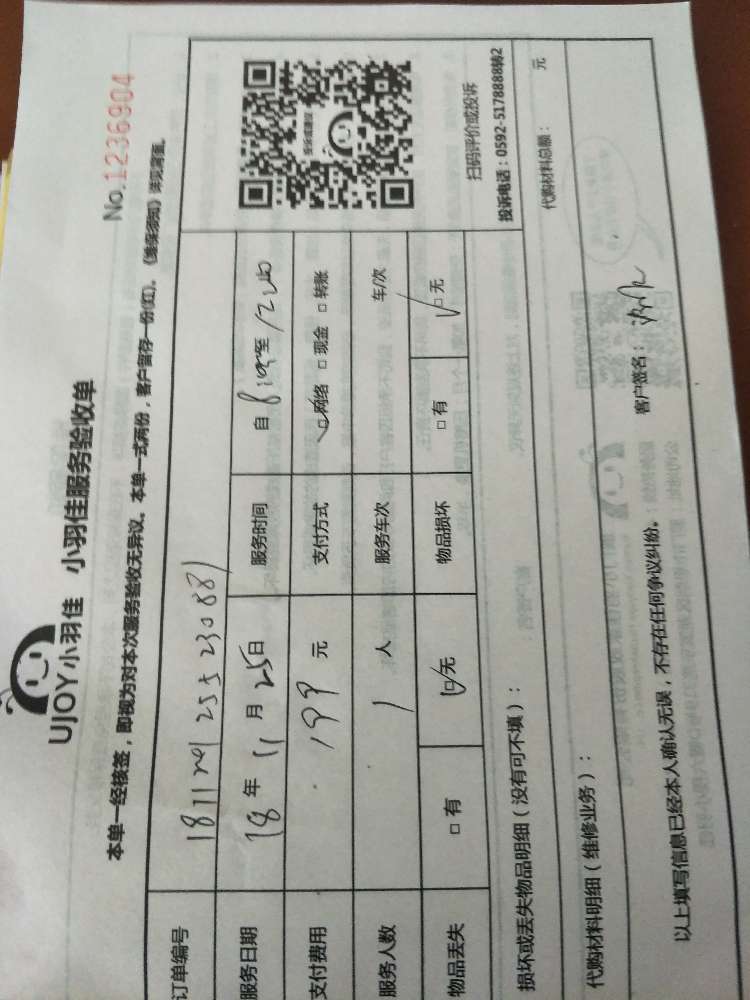 UJOY小羽佳 小羽佳服务验收单
No.1236904
本单一经核签，即视为对本次服务验收无异议。本单一式两份，客户留存一份(红)。《维保须知》详见背面。
订单编号
服务日期 18年11月25日 服务时间 自 至
支付费用 199元 支付方式 □网络 □现金 □转账
服务人数 1人 服务车次 车/次
物品丢失 □有 □无 物品损坏 □有 □无
扫码评价或投诉
投诉电话：0592-5178888转2
损坏或丢失物品明细（没有可不填）：
代购材料明细（维修业务）： 代购材料总额： 元
以上填写信息已经本人确认无误，不存在任何争议纠纷。 客户签名：